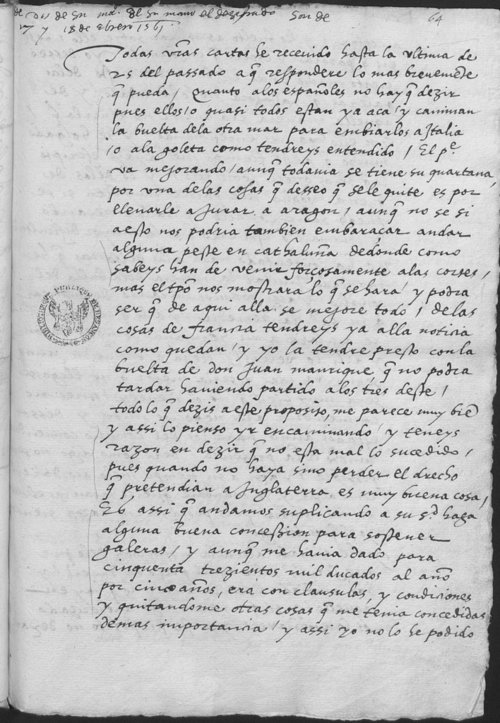 64
17 y 18 de ebrero 1561
Todas vr̃as cartas he recevido hasta la vltima de
25 del passado a q̃ respondere lo mas brevemẽte
q̃ pueda / Quanto a los españoles no hay q̃ dezir
pues ellos / o quasi todos estan ya aca / y caminan
la buelta dela otra mar para embiarlos a Italia
/ o ala goleta como tendreys entendido / El pe
va mejorando / aunq̃ todavia se tiene su quartana
por vna delas cosas q̃ desseo q̃ se le quite es por
llevarle a Jurar a aragon / aunq̃ no se si
aesto nos podria tambien embaraçar andar
alguna peste en cathaluña dedonde como
sabeys han de venir forçosamente alas cortes /
mas el tp̃o nos mostrara lo q̃ se hara / y podra
ser q̃ de aqui alla se mejore todo / delas
cosas de francia tendreys ya alla noticia
como quedan / y yo la tendre presto con la
buelta de don Juan manrique q̃ no podra
tardar haviendo partido alos tres deste /
todo lo q̃ dezis a este proposito, me parece muy biẽ
y assi lo pienso yr encaminando / y teneys
razon en dezir q̃ no esta mal lo sucedido /
pues quando no haya sino perder el drecho
q̃ pretendian a Inglaterra es muy buena cosa /
assi q̃ andamos suplicando a su s.d haga
alguna buena concession para sostener
galeras / y aunq̃ me havia dado para
cinquenta trezientos mil ducados al año
por cinco años, era con clausulas, y condiciones
y quitandome otras cosas q̃ me tenia concedidas
demas importancia / y assi yo no lo he podido